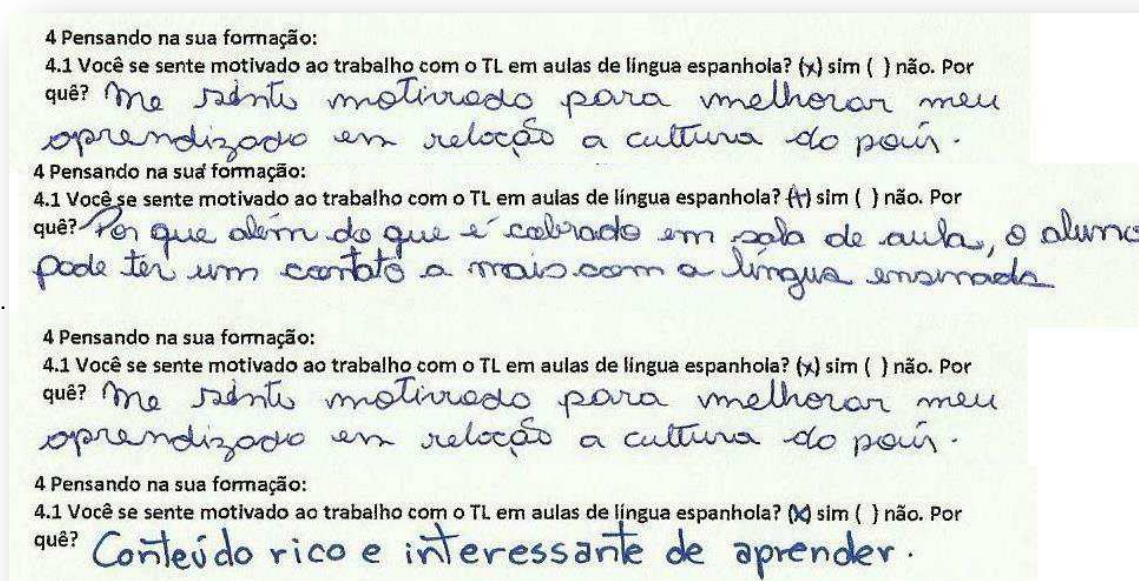 4 Pensando na sua formação:
4.1 Você se sente motivado ao trabalho com o TL em aulas de língua espanhola? (x) sim ( ) não. Por
quê? Me sinto motivado para melhorar meu
aprendizado em relação a cultura do país.
4 Pensando na sua formação:
4.1 Você se sente motivado ao trabalho com o TL em aulas de língua espanhola? (x) sim ( ) não. Por
quê? Por que além do que é cobrado em sala de aula, o aluno
pode ter um contato a mais com a língua ensinada
.
4 Pensando na sua formação:
4.1 Você se sente motivado ao trabalho com o TL em aulas de língua espanhola? (x) sim ( ) não. Por
quê? Me sinto motivado para melhorar meu
aprendizado em relação a cultura do país.
4 Pensando na sua formação:
4.1 Você se sente motivado ao trabalho com o TL em aulas de língua espanhola? (X) sim ( ) não. Por
quê? Conteúdo rico e interessante de aprender.